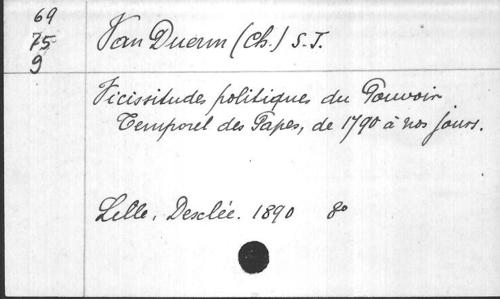 69
75
9
Van Duerm (Ch.) S. J.
Vicissitudes politiques du Pouvoir
Temporel des Papes, de 1790 à nos jours.
Lille, Desclée. 1890 8o